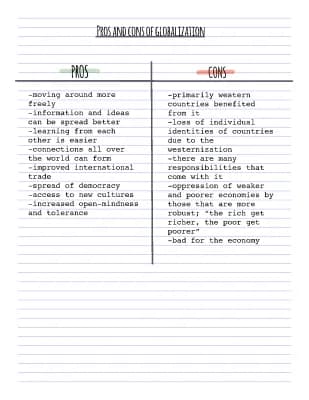 Pros and cons of globalization
PROS
-moving around more
freely
-information and ideas
can be spread better
-learning from each
other is easier
-connections all over
the world can form
-improved international
trade
-spread of democracy
-access to new cultures
-increased open-mindness
and tolerance
CONS
-primarily western
countries benefited
from it
-loss of individual
identities of countries
due to the
westernization
-there are many
responsibilities that
come with it
-oppression of weaker
and poorer economies by
those that are more
robust; "the rich get
richer, the poor get
poorer"
-bad for the economy